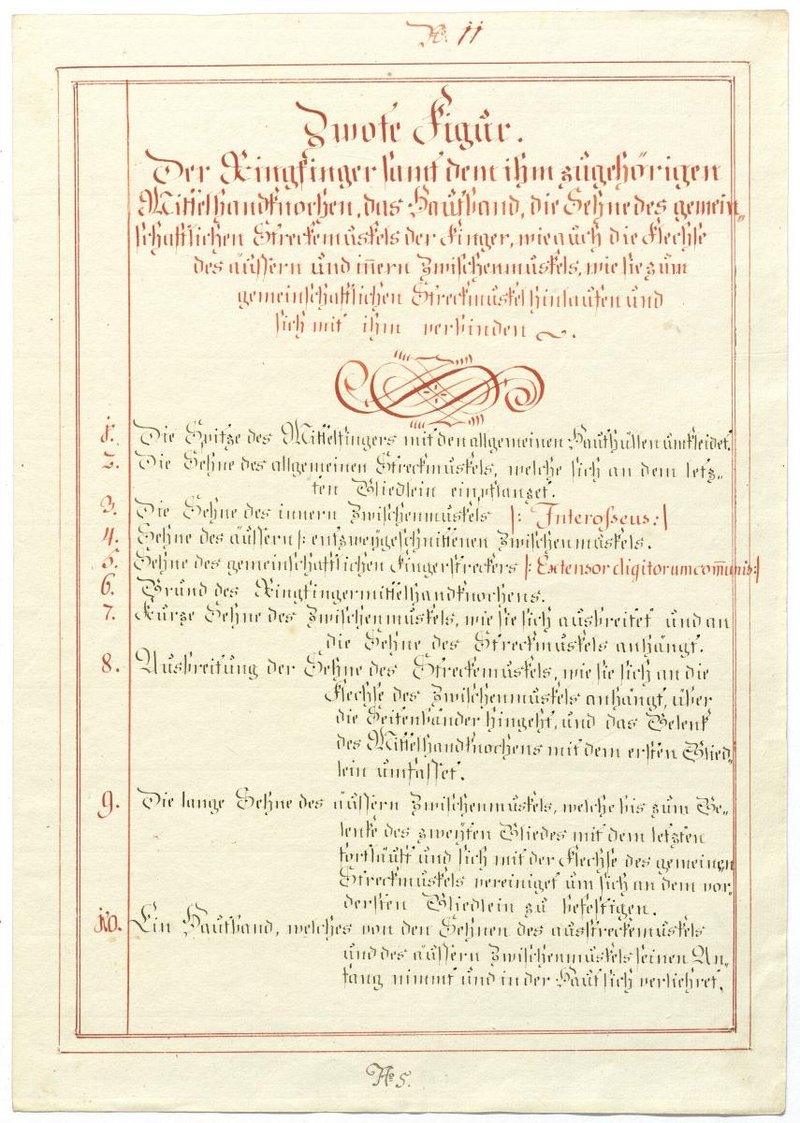 No. 11
Zwote Figur.
Der Ringfinger samt dem ihm zugehörigen
Mittelhandknochen, das Hautband, die Sehne des gemein„
schaftlichen Streckemuskels der Finger, wie auch die Flechse
des äussern und inern Zwischenmuskels, wie sie zum
gemeinschaftlichen Streckmuskel hinlaufen und
sich mit ihm verbinden.
1. Die Spitze des Mittelfingers mit den allgemeinen Hauthüllen umkleidet.
2. Die Sehne des allgemeinen Streckmuskels, welche sich an dem letz„
ten Gliedlein einpflanzet.
3. Die Sehne des innern Zwischenmuskels |: Interosseus :|
4. Sehne des äussern |: entzweygeschnittenen Zwischenmuskels.
5. Sehne des gemeinschaftlichen Fingerstreckers |: Extensor digitorum com̅unis :|
6. Grund des Ringfingermittelhandknochens.
7. Kurze Sehne des Zwischenmuskels, wie sie sich ausbreitet und an
die Sehne des Streckmuskels anhängt.
8. Ausbreitung der Sehne des Streckemuskels, wie sie sich an die
Flechse des Zwischenmuskels anhängt, über
die Seitenbänder hingeht, und das Gelenk
des Mittelhandknochens mit dem ersten Glied„
lein umfasset.
9. Die lange Sehne des äussern Zwischenmuskels, welche bis zum Ge„
lenke des zweyten Gliedes mit dem letzten
fortläuft und sich mit der Flechse des gemeinen
Streckmuskels vereiniget um sich an dem vor„
dersten Gliedlein zu befestigen.
10. Ein Hautband, welches von den Sehnen des ausstreckemuskels
und des äussern Zwischenmuskels seinen An„
fang nimmt und in der Haut sich verliehret.
No 5.